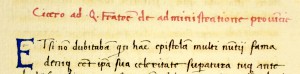 Cicero ad Q. Fratrem de administratione provincie
Etsi non dubitabam qn hanc epistolam multi nuncii fama
deniq; eet ipsa sua celeritate supatura tuq; ante